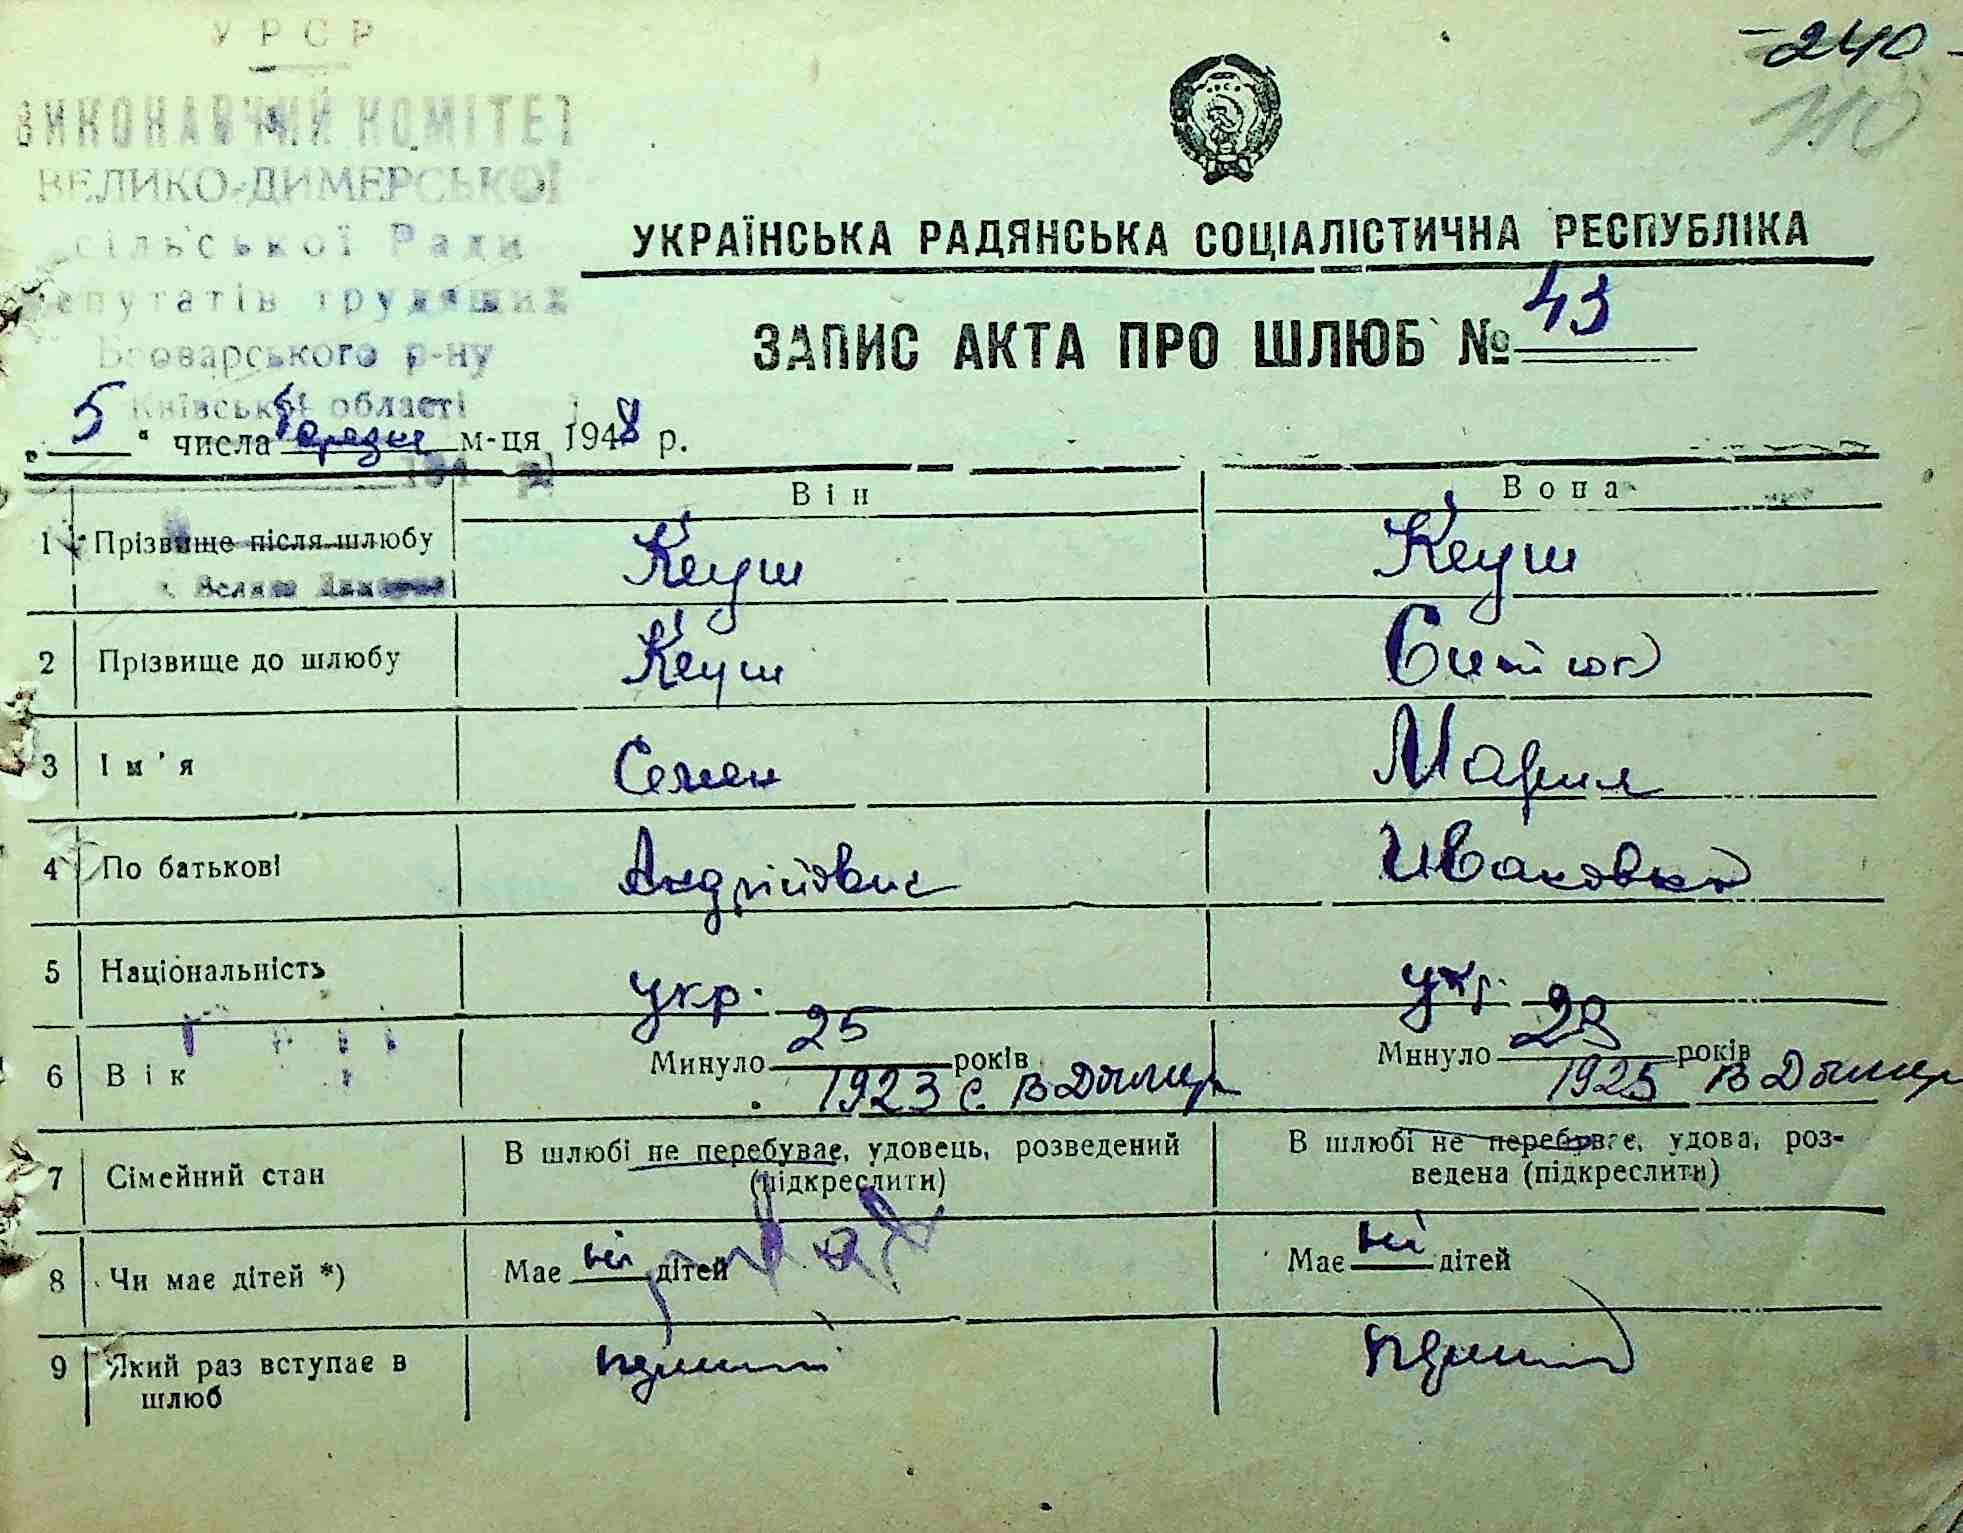 УРСР
ВИКОНАВЧИЙ КОМІТЕТ
ВЕЛИКО-ДИМЕРСЬКОЇ
сільської Ради
депутатів трудящих
Броварського р-ну
Київської області
-240-
УКРАЇНСЬКА РАДЯНСЬКА СОЦІАЛІСТИЧНА РЕСПУБЛІКА
ЗАПИС АКТА ПРО ШЛЮБ № 43
„5“ числа м-ця 1948 р.
Він Вона
1 Прізвище після шлюбу Кеуш Кеуш
2 Прізвище до шлюбу Кеуш
3 Ім'я Семен Мария
4 По батькові Андрійович Ивановна
5 Національність укр. укр.
6 Вік Минуло 25 років Минуло 23 років
1923 с. В Дымер 1925 В Дымер
7 Сімейний стан В шлюбі не перебуває, удовець, розведений (підкреслити) В шлюбі не перебуває, удова, розведена (підкреслити)
8 Чи має дітей *) Має ні дітей Має ні дітей
9 Який раз вступає в шлюб